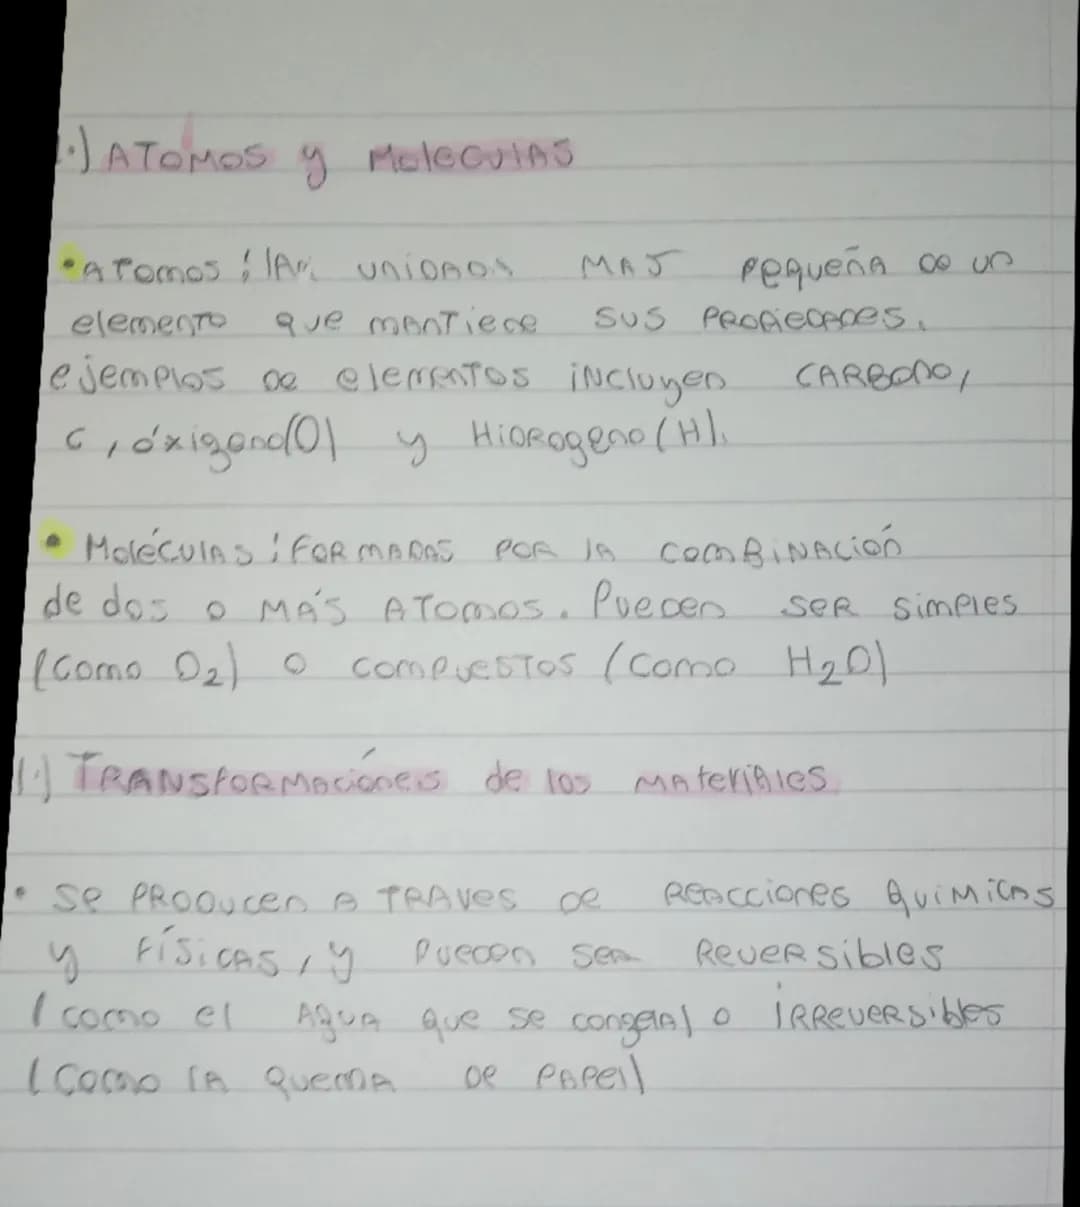 1.) ATOMOS y MoleculAS
• ATomos: lAs unidades MAS pequeña de un
elemento que mantiene sus PROPiedades.
ejemplos de elementos incluyen CARBono,
C, óxigeno(O) y HiDRogeno (H).
• MoléculAs: FORMADAS POR lA comBiNACión
de dos o MÁS ATomos. Pueden SER simples
(como O₂) o compuesTos (como H₂O)
1.) TRANSfoRMaciónes de los MAteriAles
• se PRODucen A TRAVes de REAcciones QuiMicAs
y FíSicAS, y pueden SeR ReveRsibles
(como el AguA que se congelA) o iRReveRsibles
(como lA quemA de PAPel)